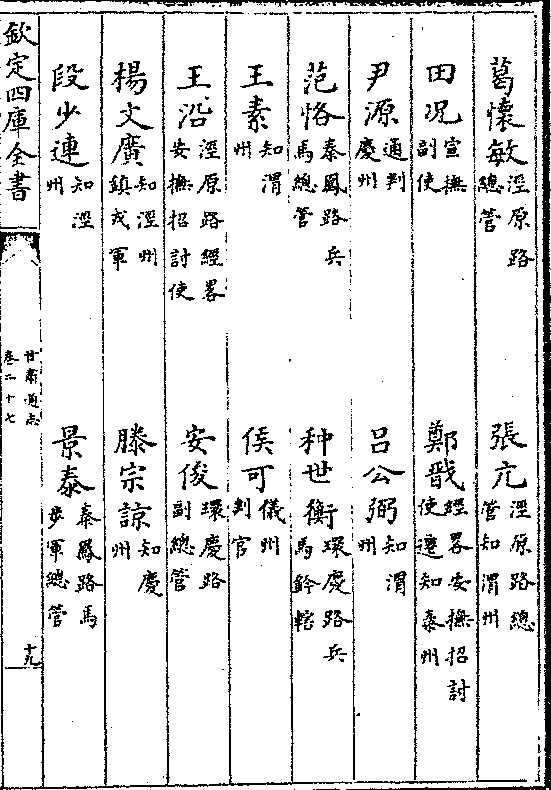 葛懷敏涇原路總管　張亢涇原路總管知渭州
田况宣撫副使　鄭戩經畧安撫招討使遷知秦州
尹源通判慶州　呂公弼知渭州
范恪秦鳳路兵馬總管　种世衡環慶路兵馬鈐轄
王素知渭州　侯可儀州判官
王沿涇原路經畧安撫招討使　安俊環慶路副總管
楊文廣知涇州鎮戎軍　滕宗諒知慶州
段少連知涇州　景泰秦鳳路馬步軍總管
欽定四庫全書　甘肅通志卷二十七　十九